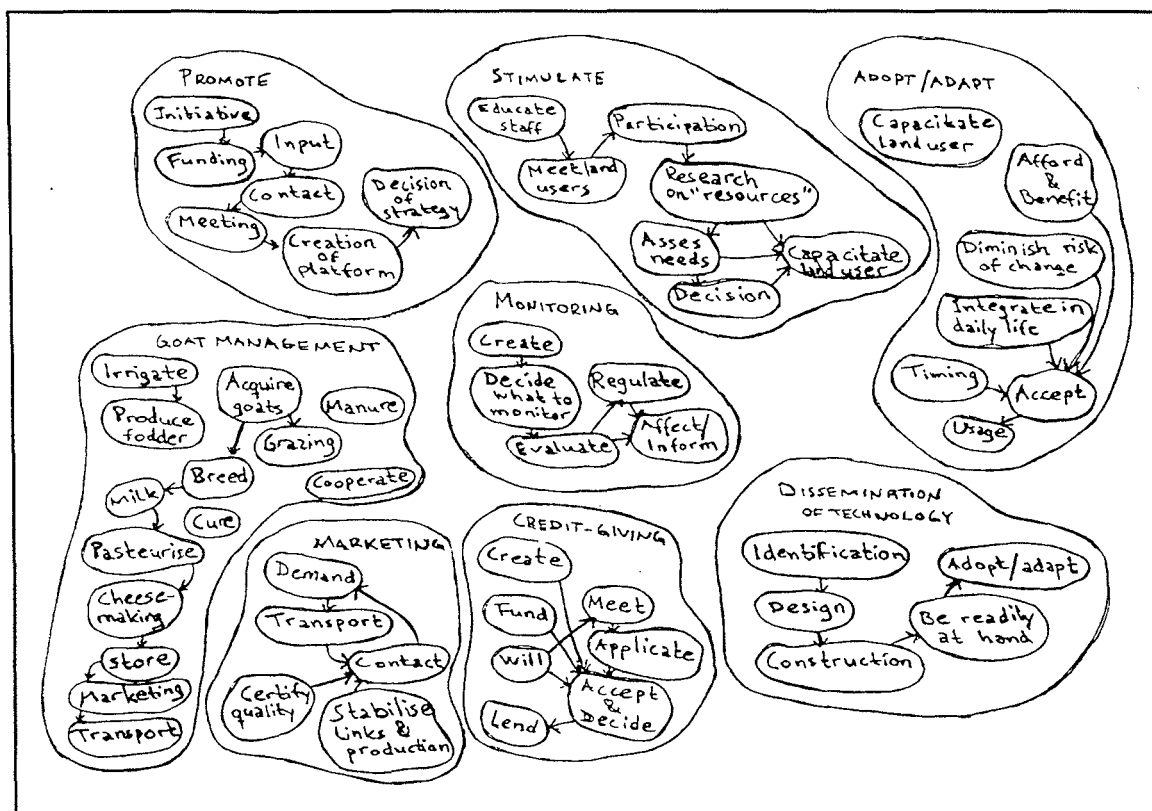 PROMOTE
Initiative
Funding
Input
Contact
Meeting
Creation
of
platform
Decision
of
strategy
STIMULATE
Educate
staff
Meet land
users
Participation
Research
on "resources"
Asses
needs
Decision
Capacitate
land user
ADOPT/ADAPT
Capacitate
land user
Afford
&
Benefit
Diminish risk
of change
Integrate in
daily life
Timing
Accept
Usage
GOAT MANAGEMENT
Irrigate
Produce
fodder
Acquire
goats
Manure
Grazing
Breed
Cooperate
Milk
Cure
Pasteurise
Cheese-
making
Store
Marketing
Transport
MONITORING
Create
Decide
what to
monitor
Evaluate
Regulate
Affect/
Inform
MARKETING
Demand
Transport
Contact
Certify
quality
Stabilise
Links &
production
CREDIT-GIVING
Create
Fund
Will
Meet
Applicate
Accept
&
Decide
Lend
DISSEMINATION
OF TECHNOLOGY
Identification
Design
Construction
Be readily
at hand
Adopt/adapt